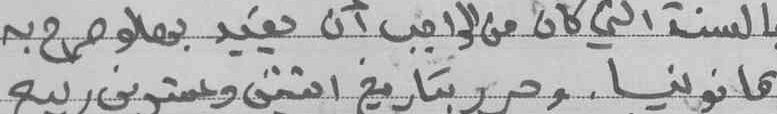 بالسنة التي كان من الواجب أن يقيد بها وصرح به
قانونيا. وحرر بتاريخ اثنين وعشرين ربيع